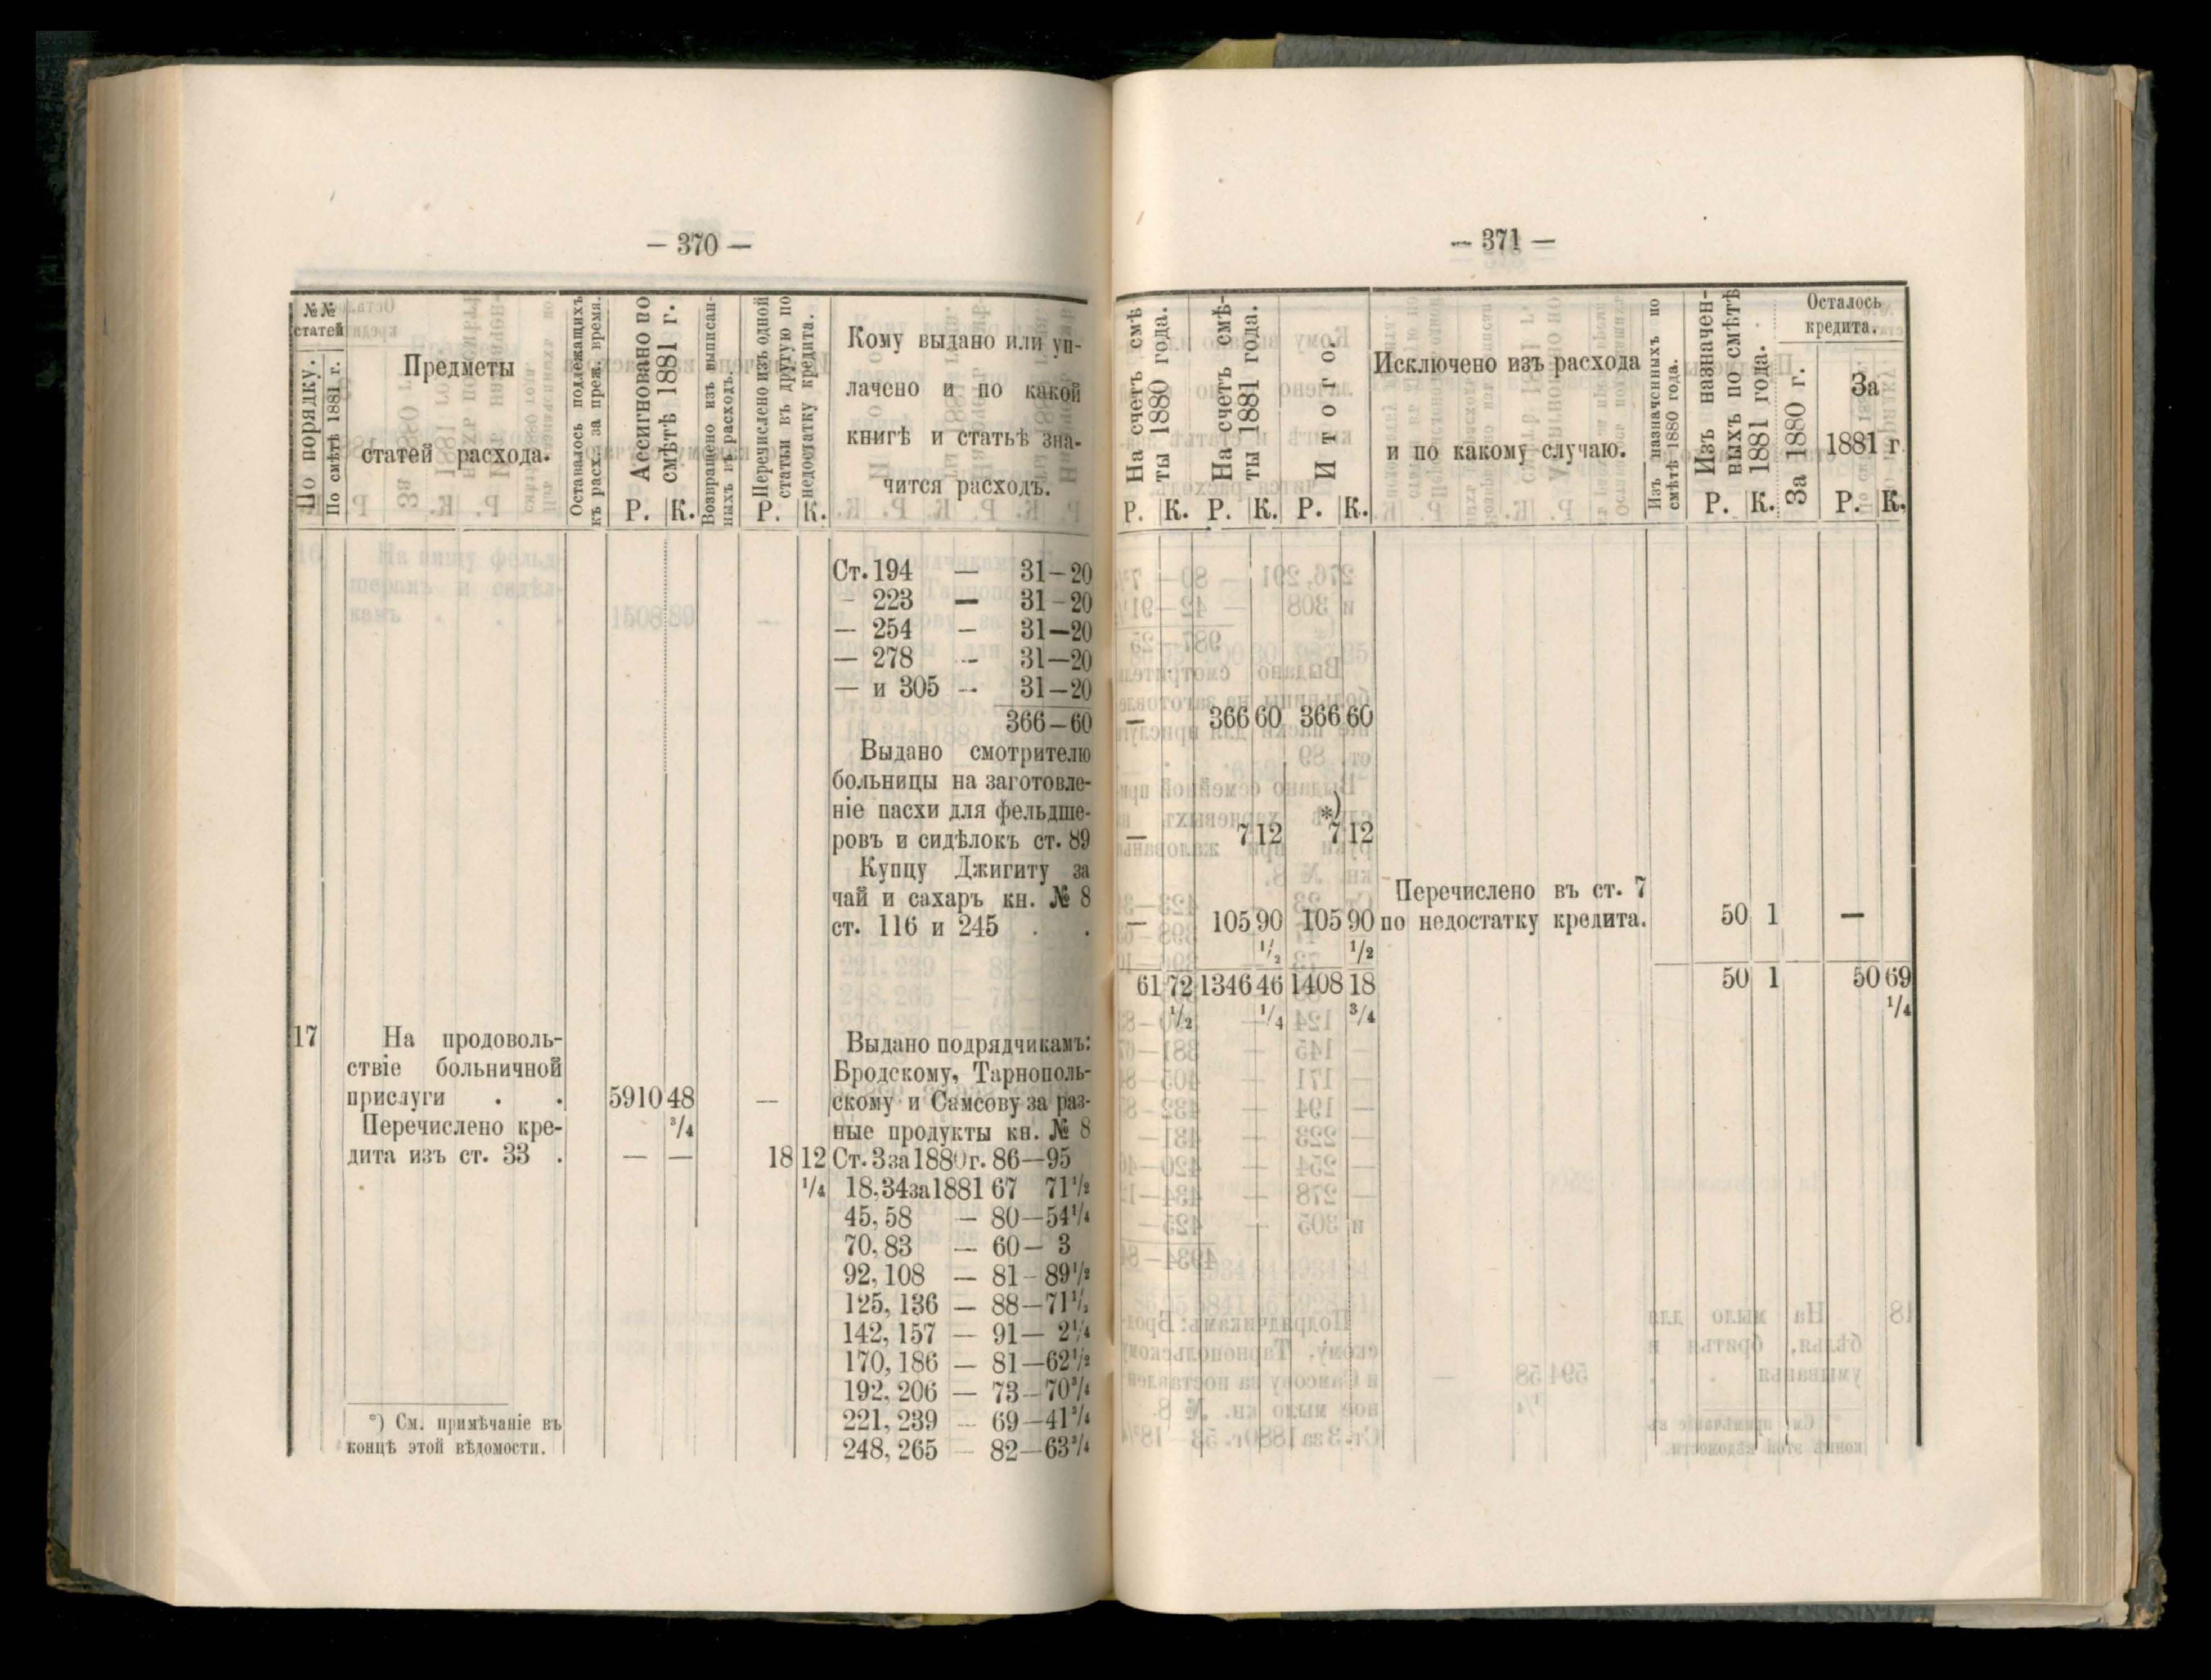 — 370 —
№№ статей
По порядку.
По смѣтѣ 1881 г.
Предметы
статей расхода.
Оставалось подлежащихъ
къ расх. за преж. время.
Ассигновано по
смѣтѣ 1881 г.
Р. К.
Возвращено изъ выписан-
ныхъ въ расходъ.
Перечислено изъ одной
статьи въ другую по
недостатку кредита.
Р. К.
Кому выдано или уп-
лачено и по какой
книгѣ и статьѣ зна-
чится расходъ.
Ст. 194 — 31—20
— 223 — 31—20
— 254 — 31—20
— 278 — 31—20
— и 305 — 31—20
366—60
Выдано смотрителю
больницы на заготовле-
ніе пасхи для фельдше-
ровъ и сидѣлокъ ст. 89
Купцу Джигиту за
чай и сахаръ кн. № 8
ст. 116 и 245 . .
17 На продоволь-
ствіе больничной
прислуги . . 5910 48 —
3/4
Перечислено кре-
дита изъ ст. 33 . — — 18 12
1/4
Выдано подрядчикамъ:
Бродскому, Тарнополь-
скому и Самсову за раз-
ные продукты кн. № 8
Ст. 3 за 1880 г. 86—95
18, 34 за 1881 67 71 1/2
45, 58 — 80—54 1/4
70, 83 — 60— 3
92, 108 — 81—89 1/2
125, 136 — 88—71 1/2
142, 157 — 91— 2 1/4
170, 186 — 81—62 1/2
192, 206 — 73—70 3/4
221, 239 — 69—41 3/4
248, 265 — 82—63 3/4
*) См. примѣчаніе въ
концѣ этой вѣдомости.
— 371 —
На счетъ смѣ-
ты 1880 года.
Р. К.
На счетъ смѣ-
ты 1881 года.
Р. К.
Итого.
Р. К.
Исключено изъ расхода
и по какому случаю.
Изъ назначенныхъ по
смѣтѣ 1880 года.
Изъ назначен-
ныхъ по смѣтѣ
1881 года.
Р. К.
Осталось
кредита.
За 1880 г.
За
1881 г
Р. К.
— 366 60 366 60
*)
— 7 12 7 12
Перечислено въ ст. 7
— 105 90 105 90 по недостатку кредита. 50 1 —
1/2 1/2
61 72 1346 46 1408 18 50 1 50 69
1/2 1/4 3/4 1/4